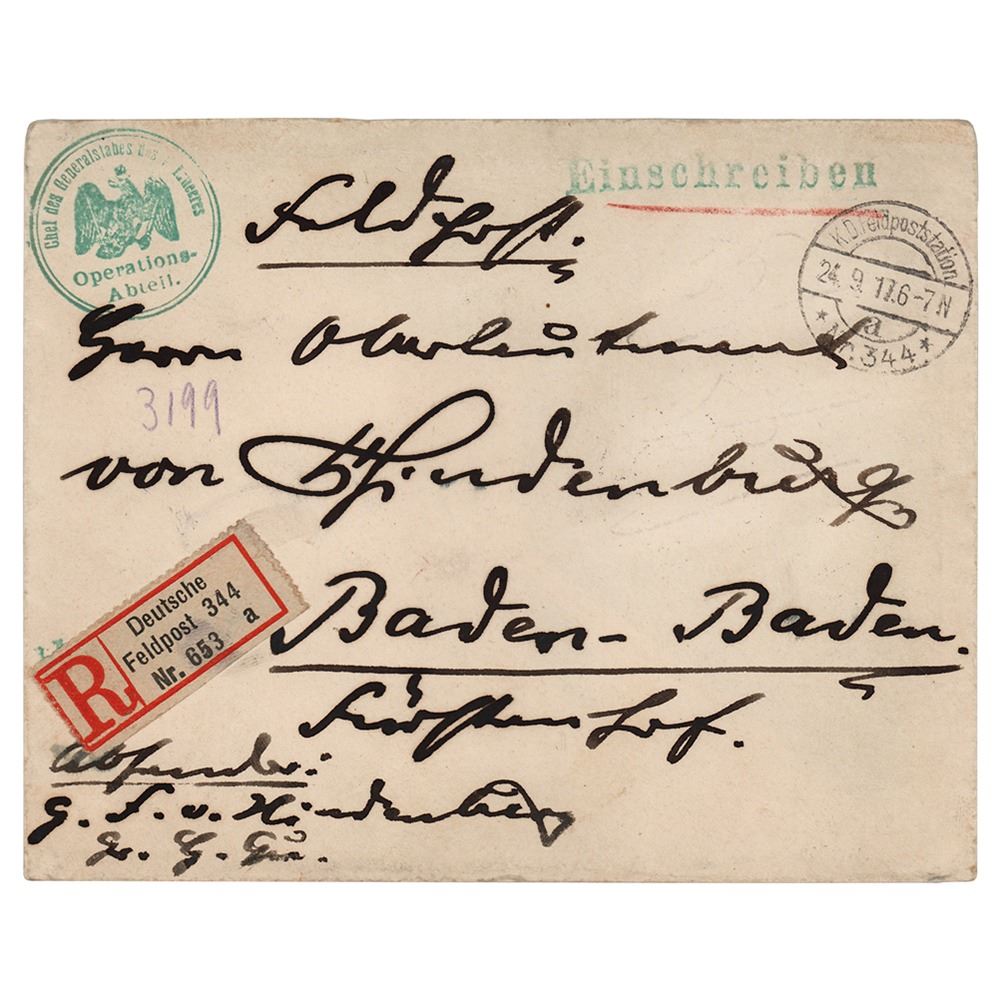 Chef des Generalstabes des Feldheeres
Operations-
Abteil.
Einschreiben
Feldpost.
K.D. Feldpoststation
24.9.17.6-7N
a
* Nr. 344 *
Herrn Oberleutnant
3199
von Hindenburg
Deutsche
Feldpost 344
Nr. 653 a
R
Baden-Baden.
Fürstenhof.
Absender:
G. F. v. Hindenburg
Gr. H. Qu.